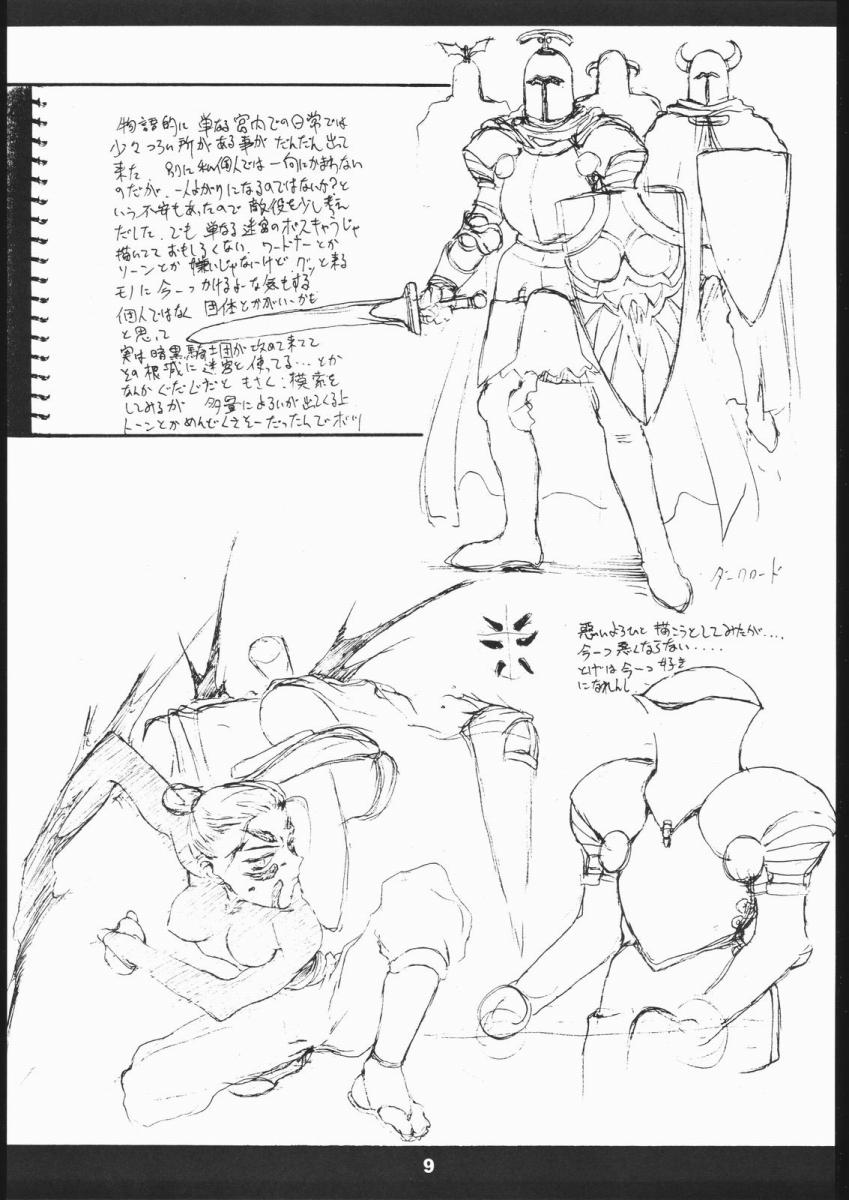 物語的に 単なる宮内での日常では
少々つらい所がある事が だんだん出て
来た. 別に私個人では一向にかまわない
のだが. 一人よがりになるのではないか?と
いう不安もあったので 敵役を少し考え
だした. でも 単なる迷宮のボスキャラじゃ
描いてて おもしろくない. ワードナーとか
ソーンとか 嫌いじゃないけど. グッと来る
モノに今一つかけるよーな気もする
個人ではなく 団体とかがいいかも
と思って
実は暗黒騎士団が攻めて来てて
その根城に迷宮を使ってる…とか
なんかぐだぐだと もさく:模索を
してみるが 多量によろいが出てくる上
トーンとかめんどくさそーだったんでボツ
ダークロード
悪いよろひを 描こうとしてみたが....
今一つ悪くならない....
とげは今一つ好き
になれんし
9